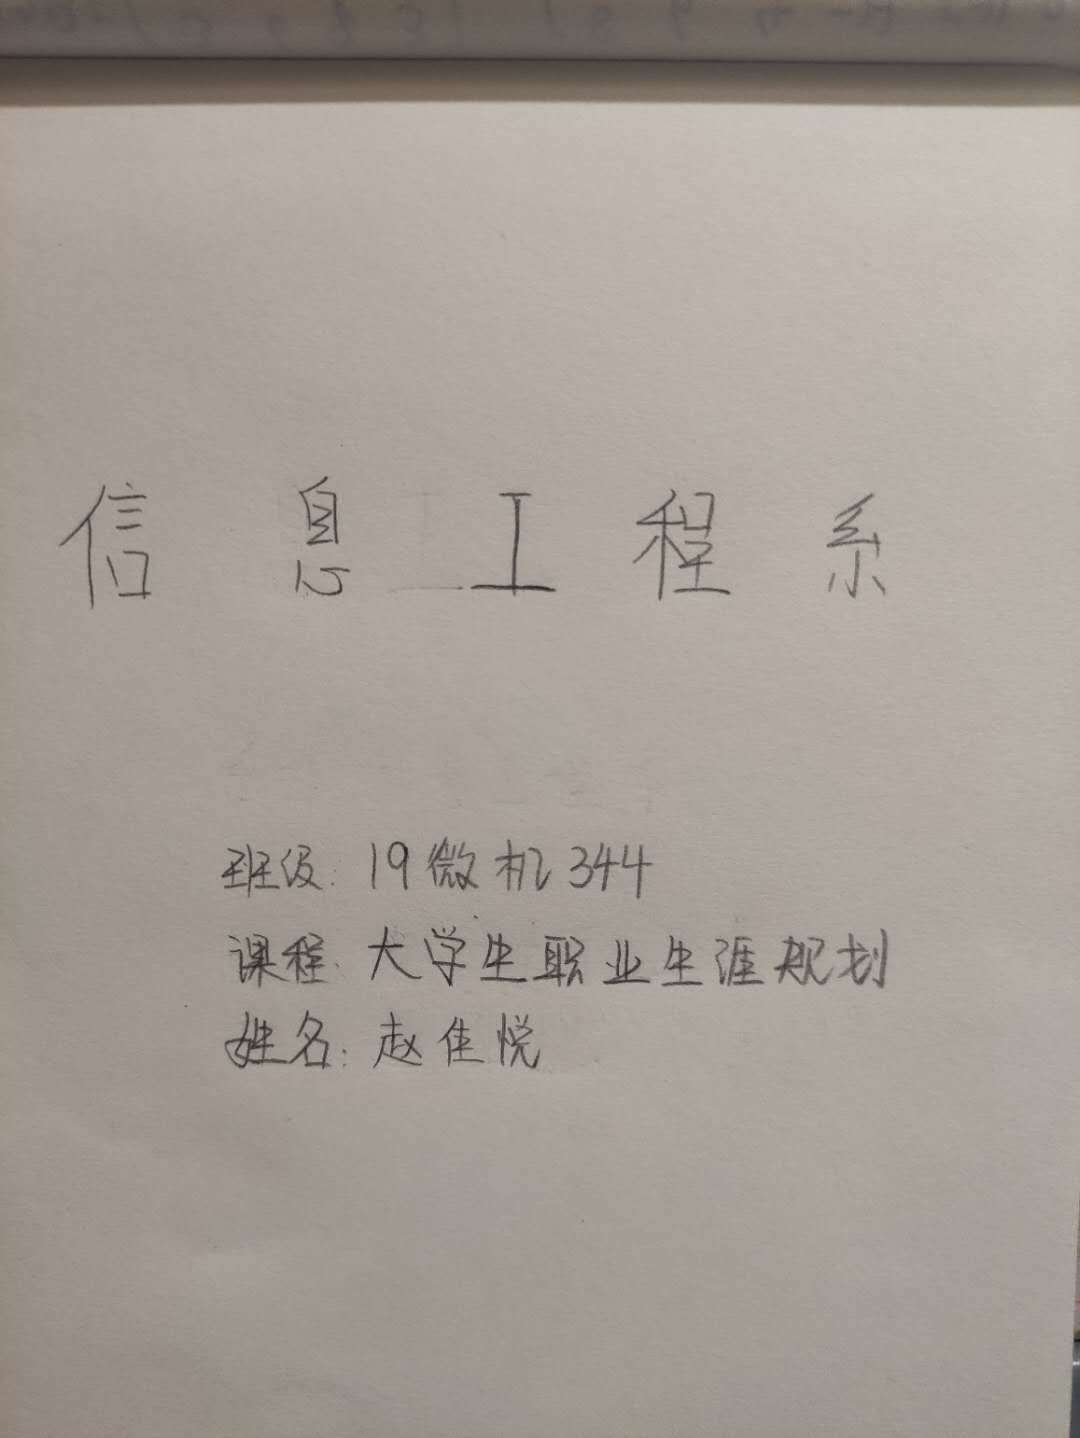 信息工程系
班级: 19微机344
课程: 大学生职业生涯规划
姓名: 赵佳悦